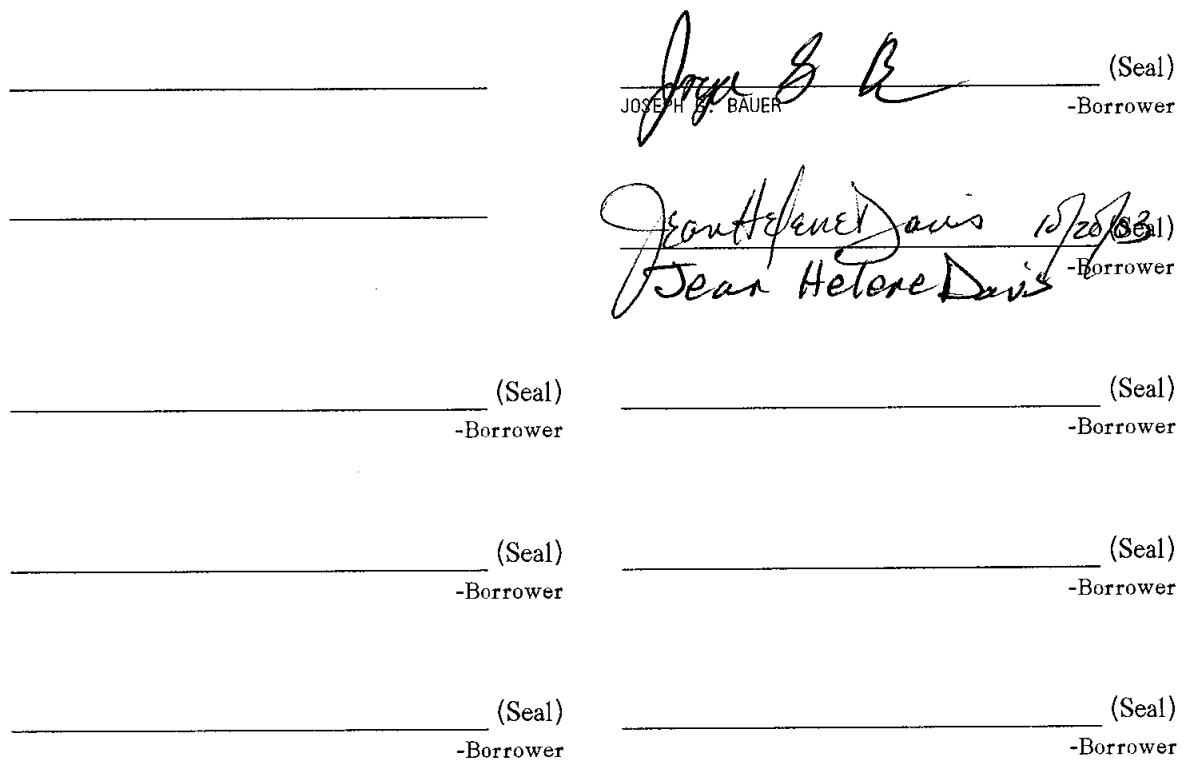 (Seal)
JOSEPH G. BAUER
-Borrower
Jean Helene Davis 10/20/03 (Seal)
Jean Helene Davis -Borrower
(Seal) (Seal)
-Borrower -Borrower
(Seal) (Seal)
-Borrower -Borrower
(Seal) (Seal)
-Borrower -Borrower